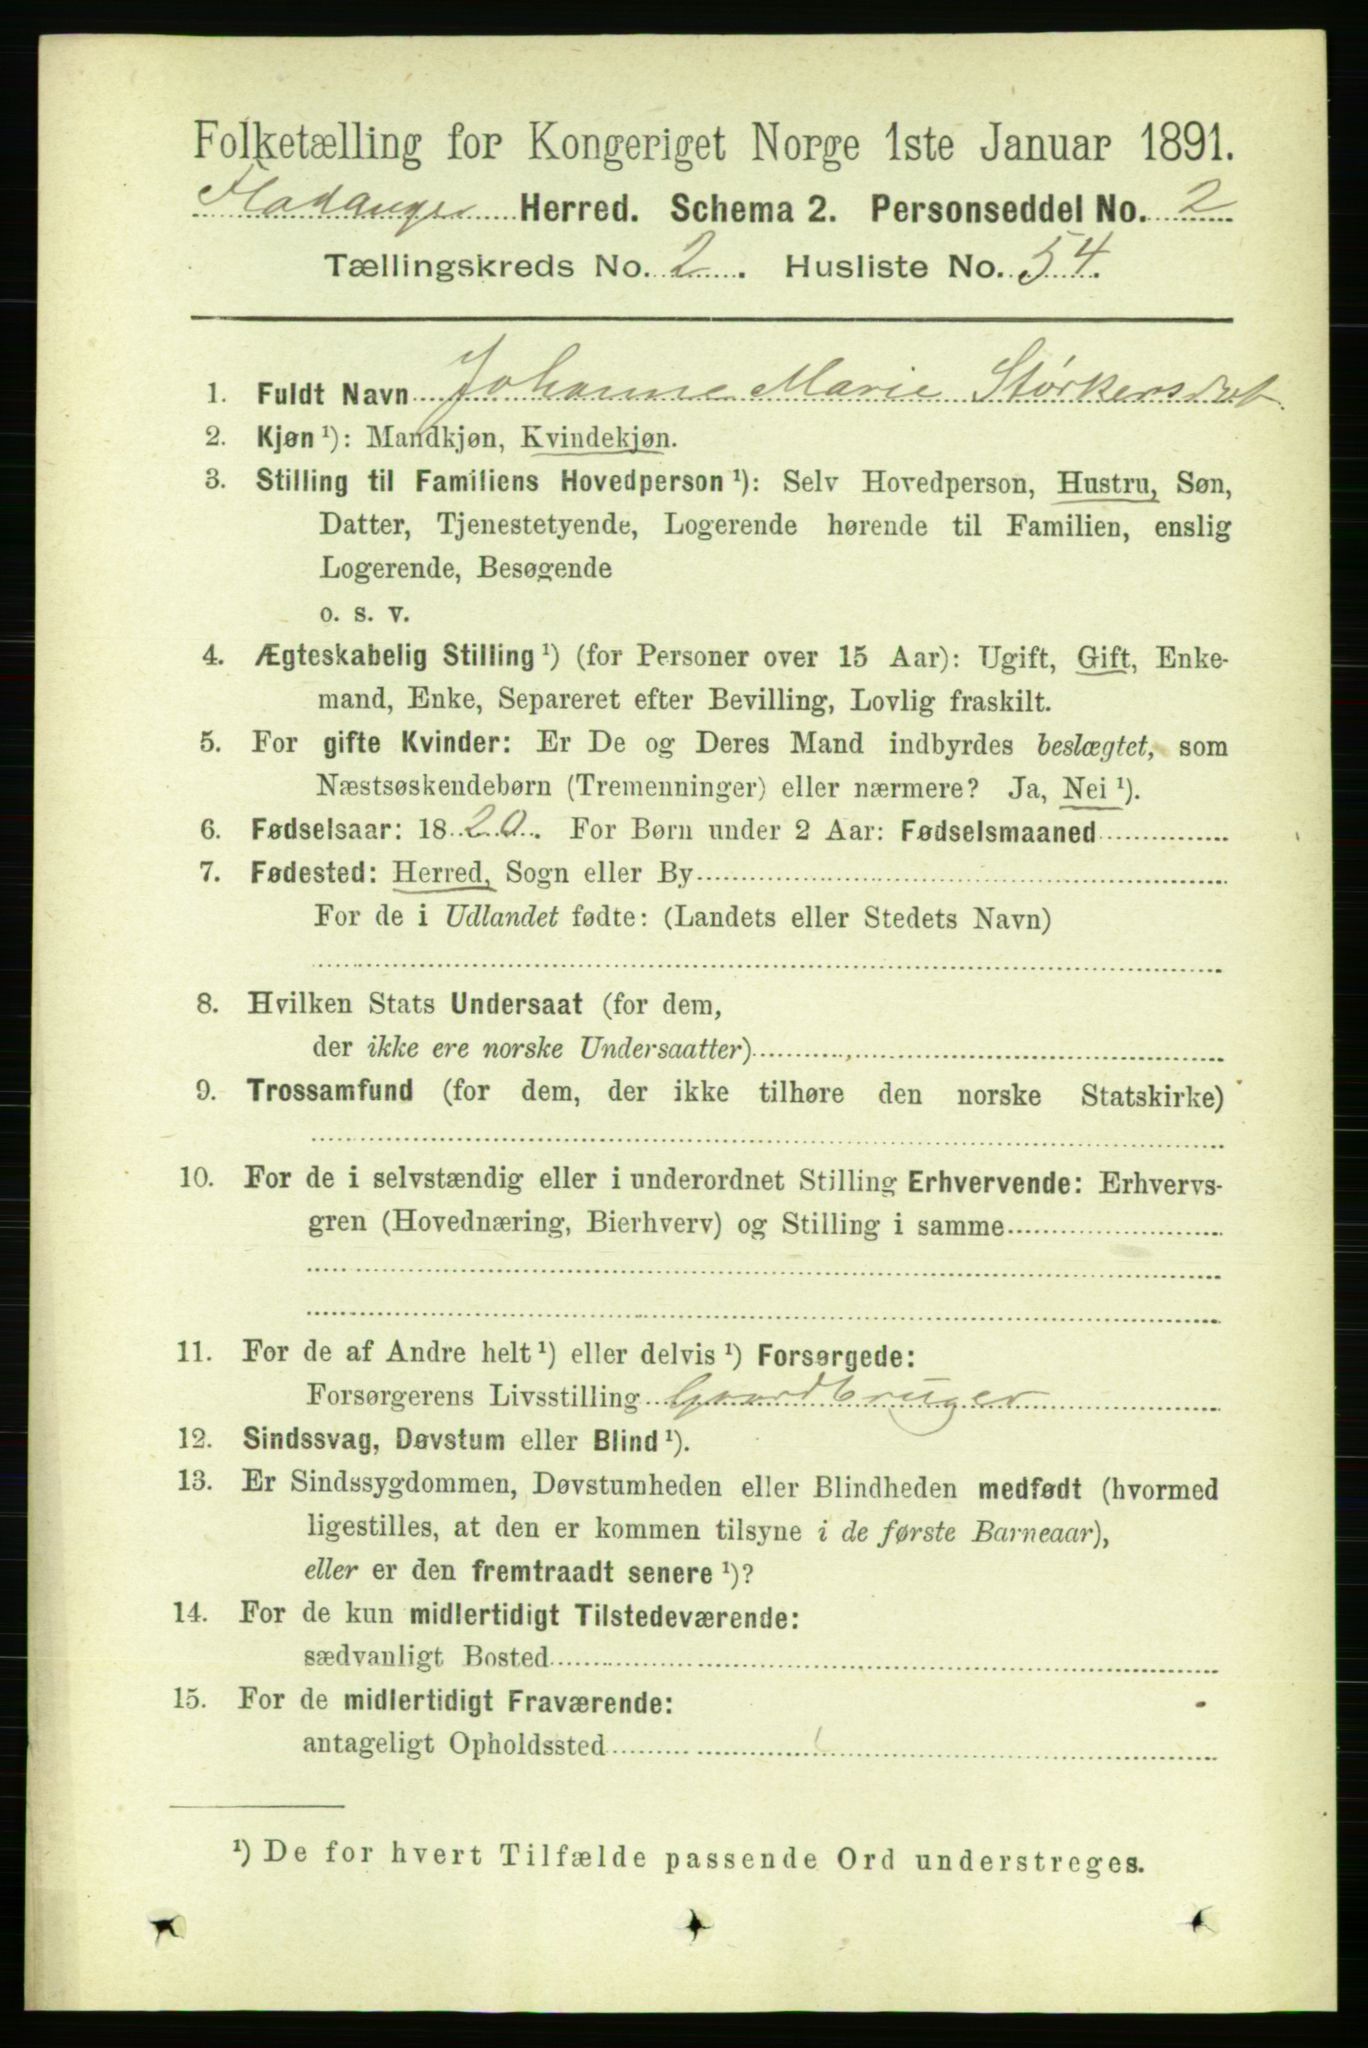 Folketælling for Kongeriget Norge 1ste Januar 1891.
Fladanger Herred. Schema 2. Personseddel No. 2
Tællingskreds No. 2. Husliste No. 54.
1. Fuldt Navn Johanne Marie Størkersdat.
2. Kjøn ¹): Mandkjøn, Kvindekjøn.
3. Stilling til Familiens Hovedperson ¹): Selv Hovedperson, Hustru, Søn,
Datter, Tjenestetyende, Logerende hørende til Familien, enslig
Logerende, Besøgende
o. s. v.
4. Ægteskabelig Stilling ¹) (for Personer over 15 Aar): Ugift, Gift, Enke-
mand, Enke, Separeret efter Bevilling, Lovlig fraskilt.
5. For gifte Kvinder: Er De og Deres Mand indbyrdes beslægtet, som
Næstsøskendebørn (Tremenninger) eller nærmere? Ja, Nei ¹).
6. Fødselsaar: 1820. For Børn under 2 Aar: Fødselsmaaned
7. Fødested: Herred, Sogn eller By
For de i Udlandet fødte: (Landets eller Stedets Navn)
8. Hvilken Stats Undersaat (for dem,
der ikke ere norske Undersaatter)
9. Trossamfund (for dem, der ikke tilhøre den norske Statskirke)
10. For de i selvstændig eller i underordnet Stilling Erhvervende: Erhvervs-
gren (Hovednæring, Bierhverv) og Stilling i samme
11. For de af Andre helt ¹) eller delvis ¹) Forsørgede:
Forsørgerens Livsstilling Gaardbruger
12. Sindssvag, Døvstum eller Blind ¹).
13. Er Sindssygdommen, Døvstumheden eller Blindheden medfødt (hvormed
ligestilles, at den er kommen tilsyne i de første Barneaar),
eller er den fremtraadt senere ¹)?
14. For de kun midlertidigt Tilstedeværende:
sædvanligt Bosted
15. For de midlertidigt Fraværende:
antageligt Opholdssted
¹) De for hvert Tilfælde passende Ord understreges.